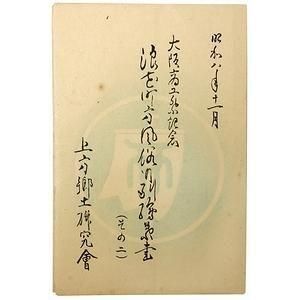 昭和八年十一月
大阪商工祭記念
浪花町方風俗行列絵葉書
(その二)
上方郷土研究會